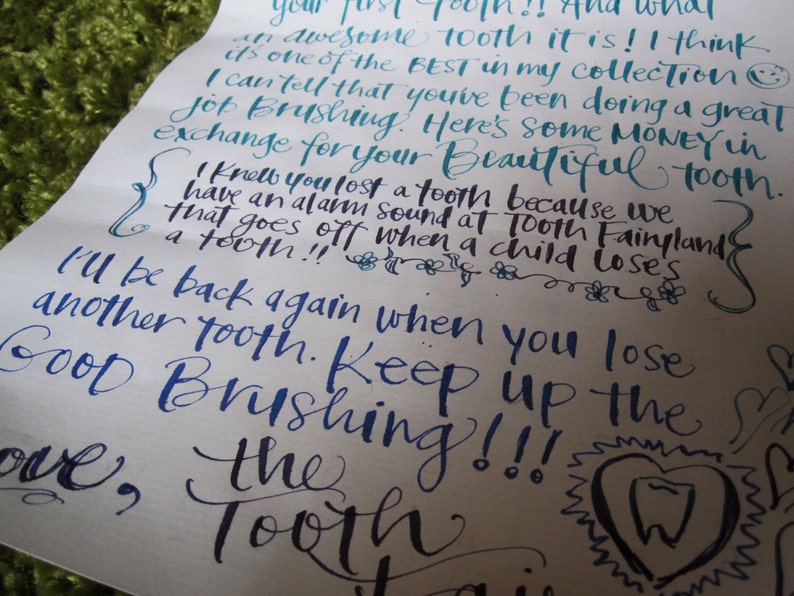 your first tooth!! And what
an awesome tooth it is! I think
it's one of the BEST in my collection
I can tell that you've been doing a great
job Brushing. Here's some MONEY in
exchange for your Beautiful tooth.
I knew you lost a tooth because we
have an alarm sound at Tooth Fairyland
that goes off when a child loses
a tooth!!
I'll be back again when you lose
another tooth. Keep up the
Good Brushing!!!
ove, the
Tooth